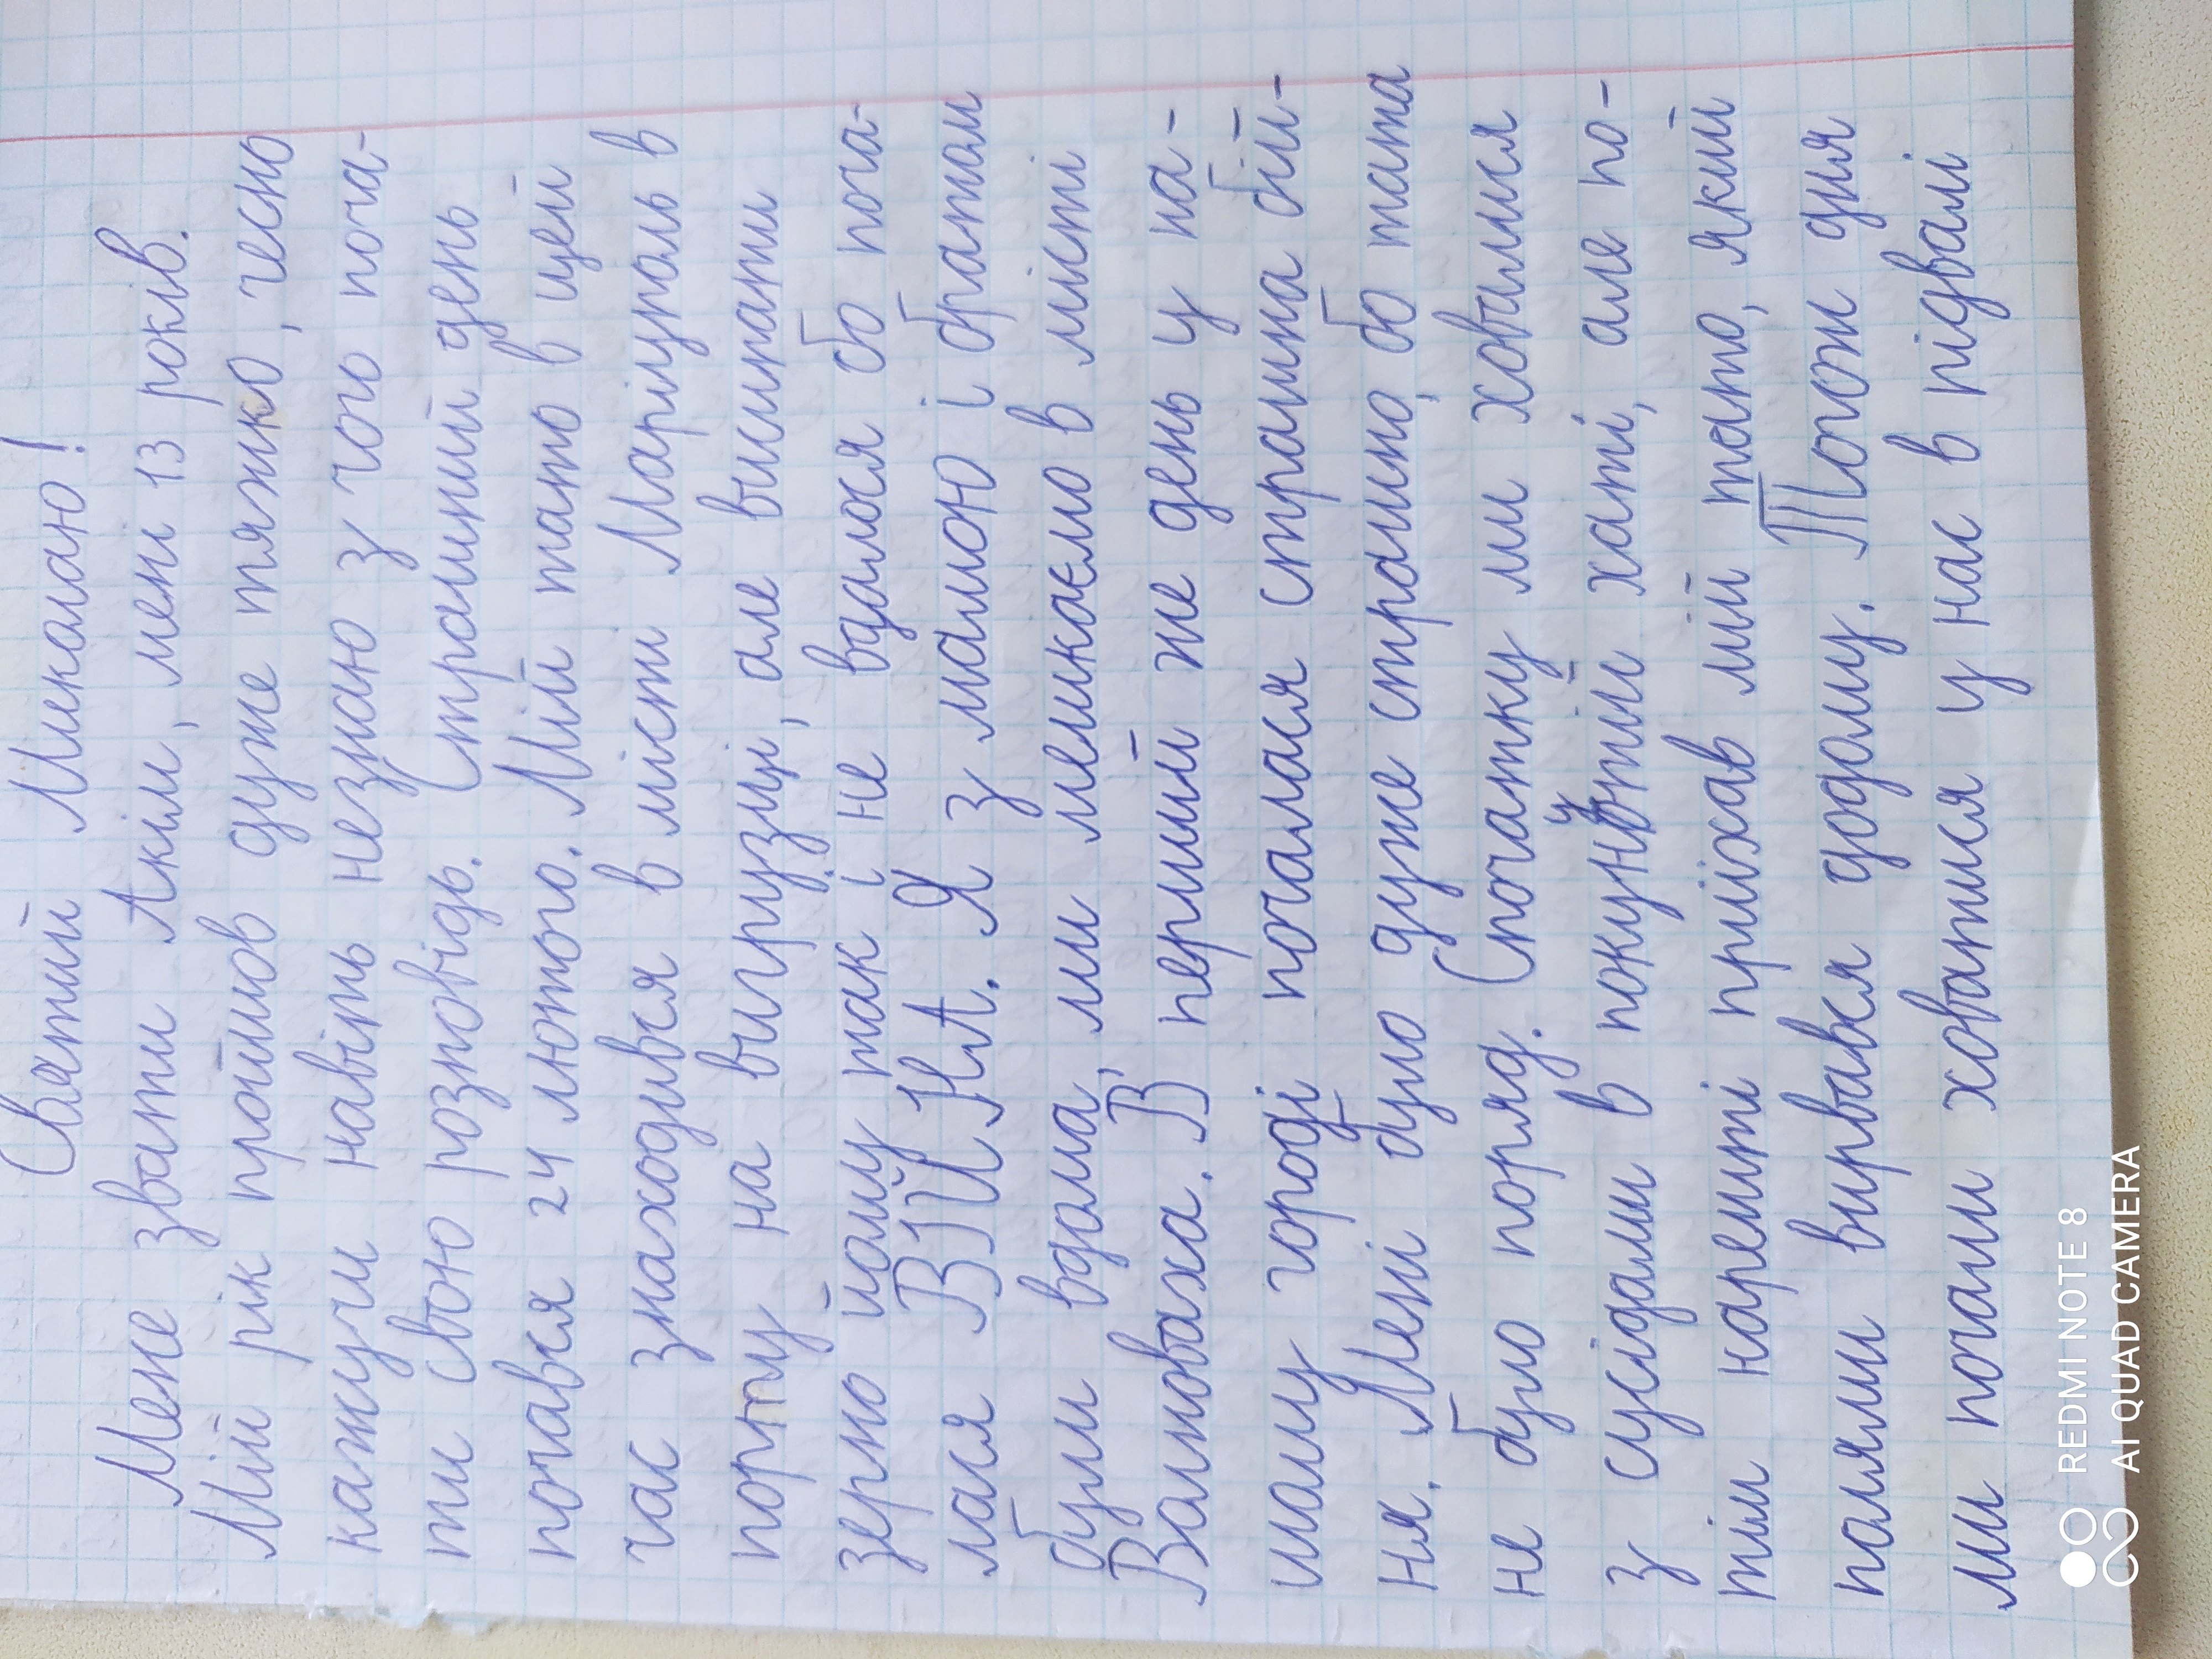 Святий Миколаю!
Мене звати Акім, мені 13 років.
Мій рік пройшов дуже тяжко, чесно
кажучи навіть незнаю з чого поча-
ти свою розповідь. Страшний день
почався 24 лютого. Мій тато в цей
час знаходився в місті Маріуполь в
порту на вигрузці, але висипати
зерно йому так і не вдалося бо поча-
лася ВІЙНА. Я з мамою і братом
були вдома, ми мешкаємо в місті
Волноваха. В перший же день у на-
шому городі почалася страшна бій-
ня. Мені було дуже страшно, бо тата
не було поряд. Спочатку ми ховалися
з сусідами в покунутій хаті, але по-
тім нарешті приїхав мій тато, який
полями вирвався додому. Тогож дня
ми почали ховатися у нас в підвалі
REDMI NOTE 8
AI QUAD CAMERA